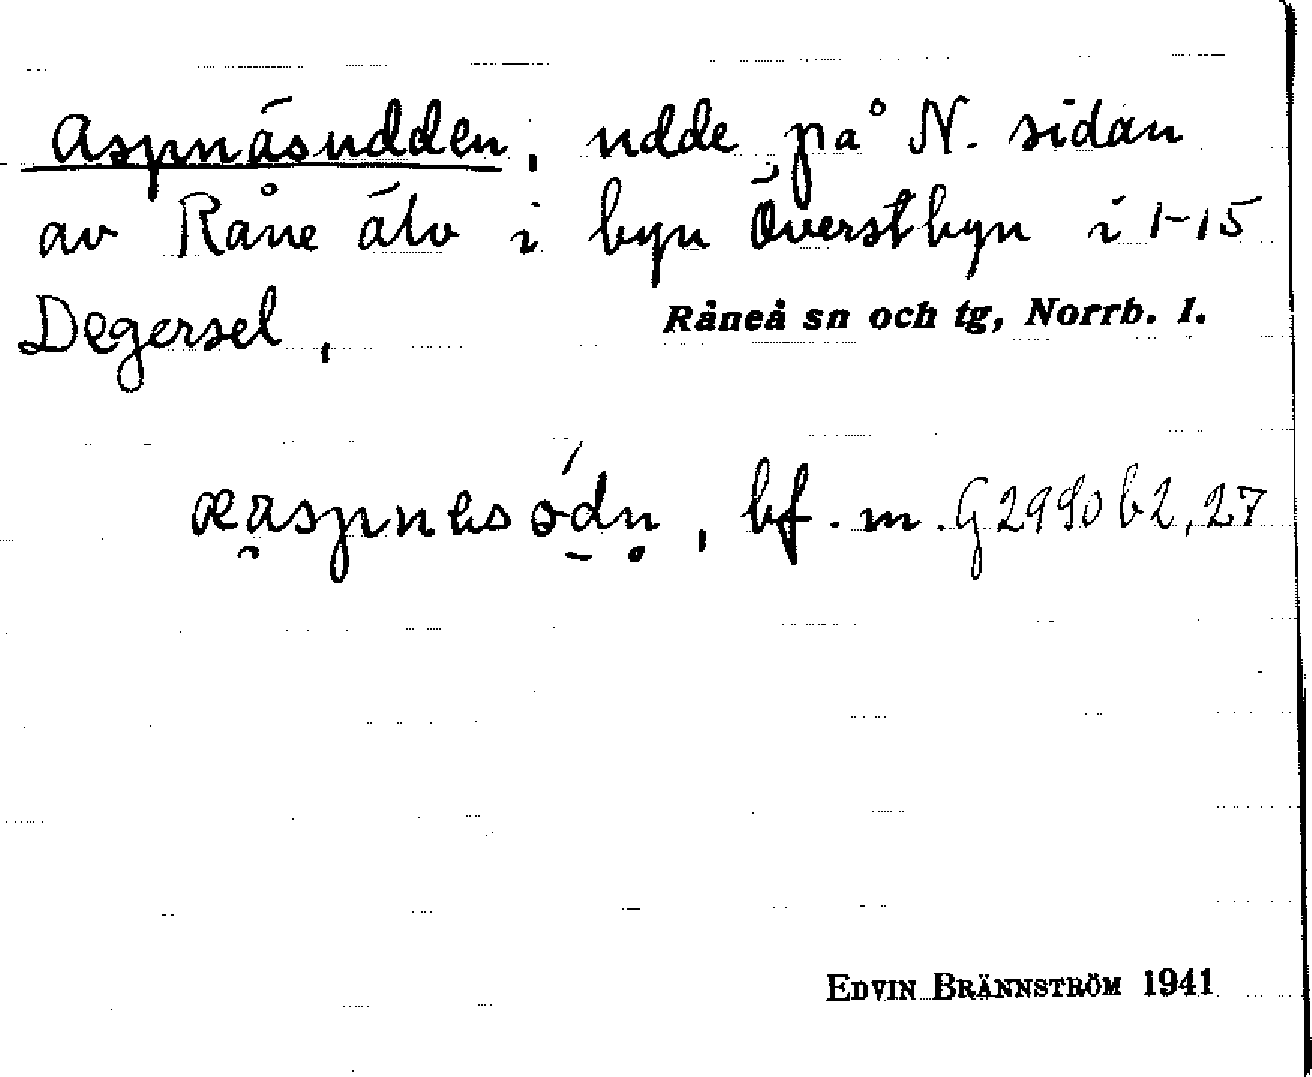 Aspnäsudden, udde på N. sidan
av Råne älv i byn Överstbyn i 1-15
Degersel,
Råneå sn och tg, Norrb. l.
bf. m. G2990b2,27
EDVIN BRÄNNSTRÖM 1941